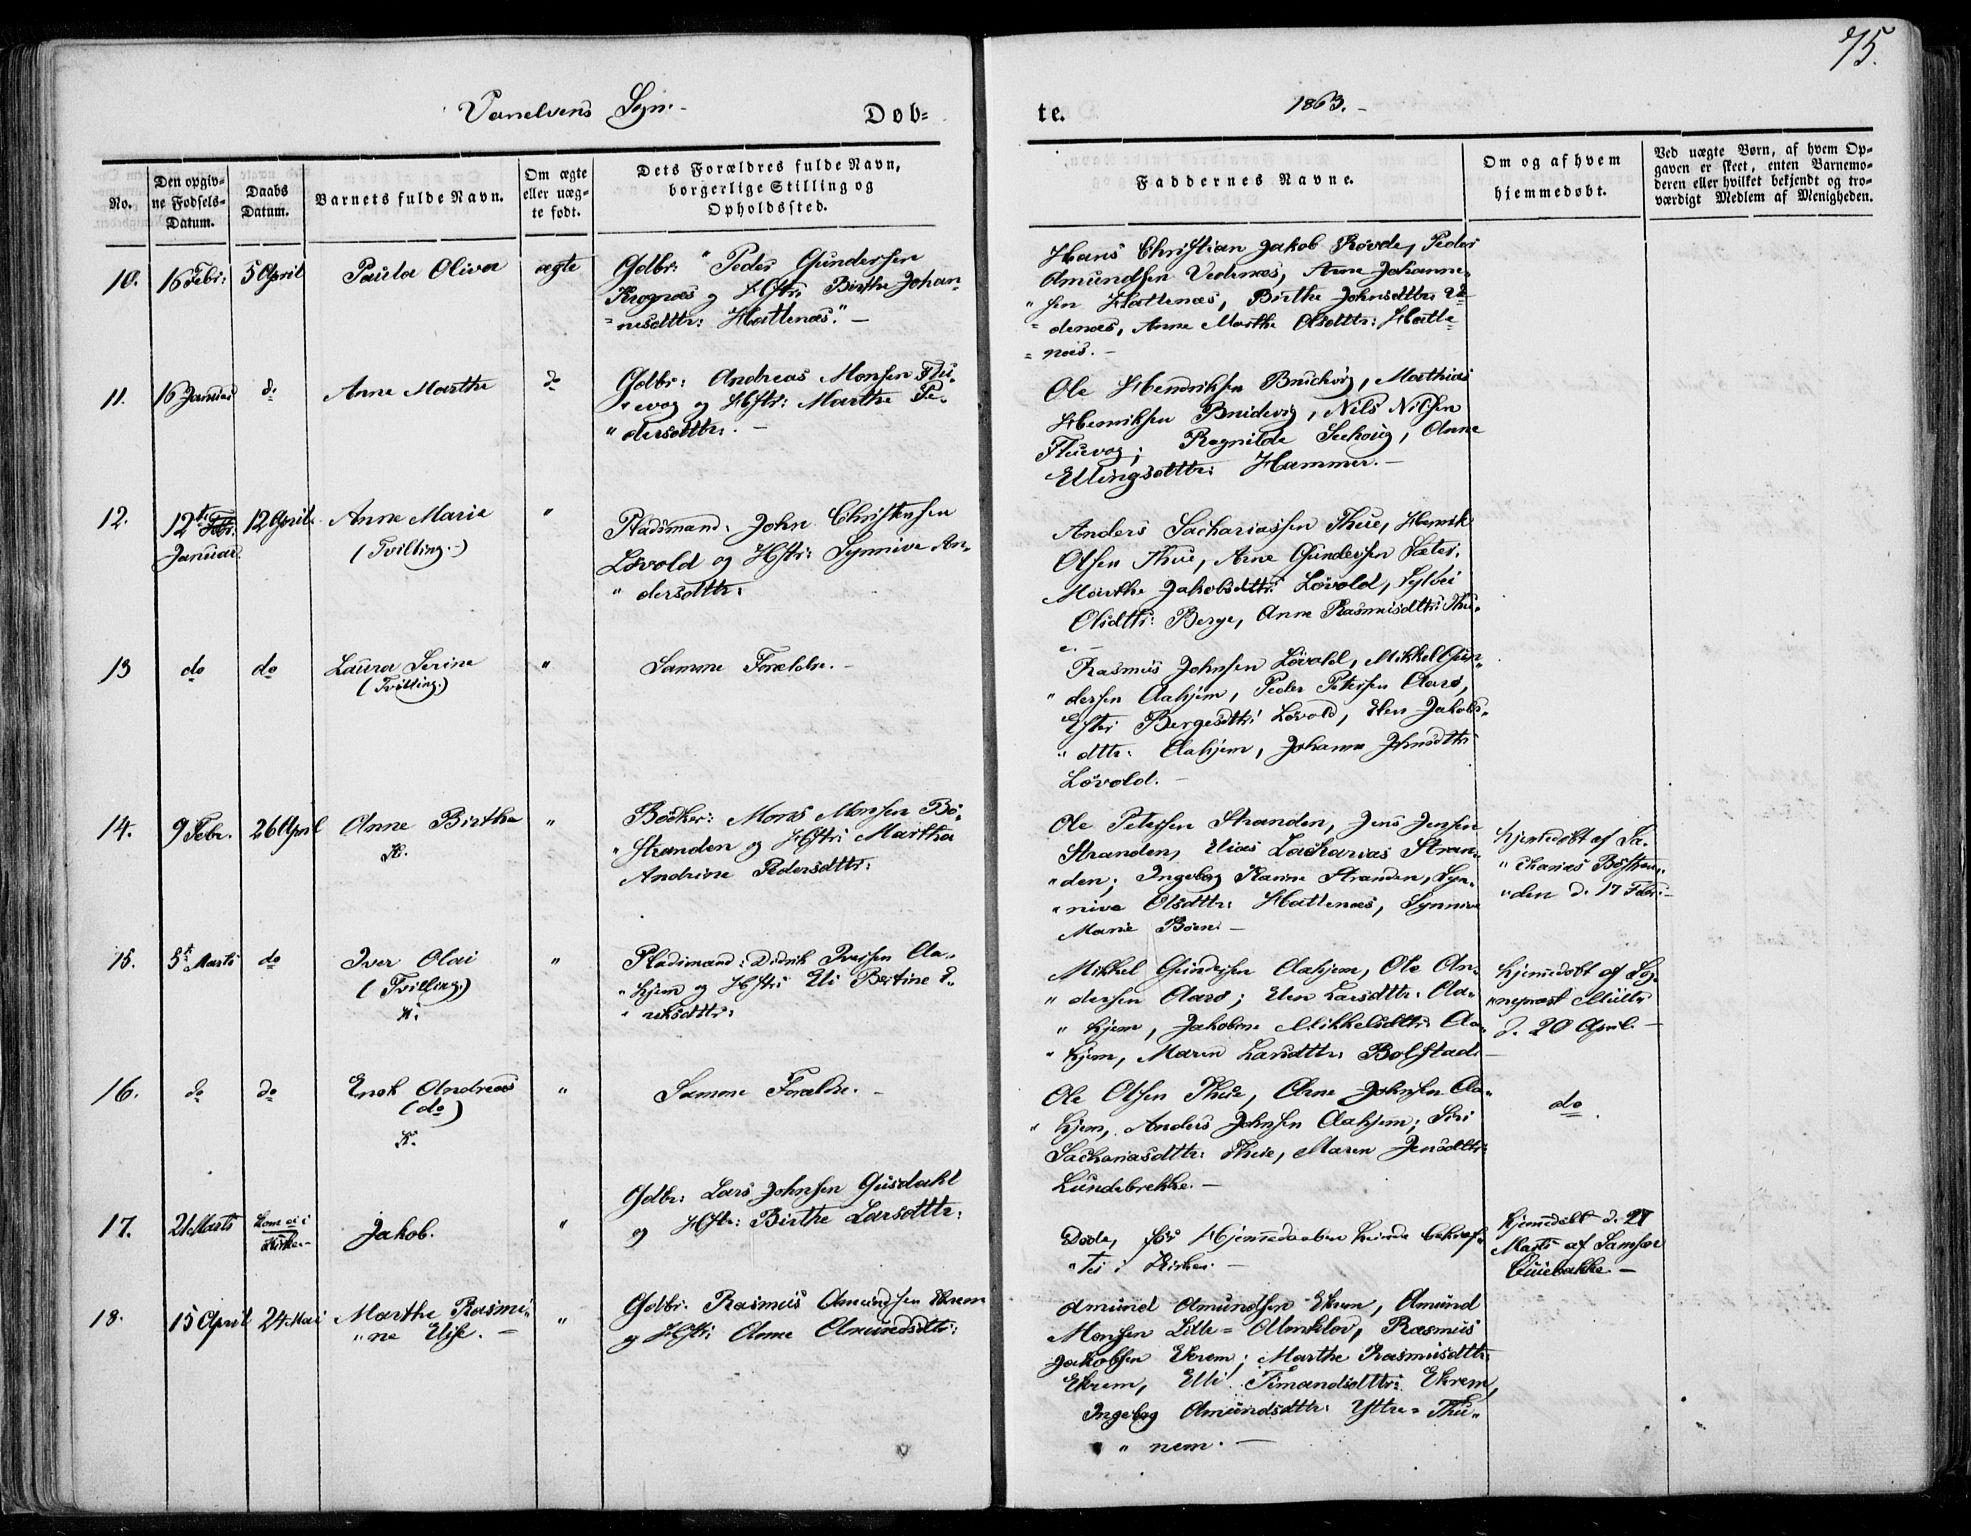 75.
Vanelvens Sogn.
Døb=
te.
1863.
No.
Den opgiv-
ne Fødsels-
Datum.
Daabs
Datum.
Barnets fulde Navn.
Om ægte
eller uæg-
te født.
Dets Forældres fulde Navn,
borgerlige Stilling og
Opholdssted.
Faddernes Navne.
Om og af hvem
hjemmedøbt.
Ved uægte Børn, af hvem Op-
gaven er skeet, enten Barnemo-
deren eller hvilket bekjendt og tro-
værdigt Medlem af Menigheden.
10. 16 Febr: 5 April Paula Oliva ægte
Gdbr: Peder Gundersen
Krognæs og Hstr: Birthe Johan-
=nesdttr: Hattenæs.
Hans Christian Jakob Rovde, Peder
Amundsen Vedenæs, Arne Johanne-
"sen Hattenæs, Birthe Johnsdttr: Ve-
=denæs, Anne Marthe Olsdttr: Hatle-
=næs.
11. 16 Januar do Anne Marthe do
Gdbr: Andreas Monsen Flu-
"evog og Hstr: Marthe Pe-
"dersdttr:
Ole Hendriksen Brudevig, Mathias
Henriksen Brudevig, Nils Nilsen
Fluevog; Ragnilde Seehoug, Anne
Ellingsdttr: Hammer.
12. 12te Febr: 12 April Anne Marie "
Januar (Tvilling.)
Pladsmand: John Christensen
Løvold og Hstr: Synnive An-
"dersdttr:
Anders Sachariassen Thue, Henrik
Olsen Thue, Arne Gundersen Sæter.
Marthe Jakobsdttr: Løvold, Sylvei
Olsdttr: Berge, Anne Rasmusdttr: Thu-
e.
13 do do Laura Serine "
(Tvilling.)
Samme Forældre.
Rasmus Johnsen Løvold, Mikkel Gun-
"dersen Aahjem, Peder Petersen Aarø,
Ester Bergesdttr: Løvold, Elen Jakobs-
"dttr: Aahjem, Johanne Johnsdttr:
Løvold.
14. 9 Febr. 26 April Anne Birthe "
K.
Bødker: Mons Monsen Bø-
"stranden og Hstr: Martha
Andrine Pedersdttr:
Ole Petersen Stranden, Jens Jensen
Stranden, Elias Zacharias Stran-
"den; Ingeborg Karine Stranden, Syn-
"nive Olsdttr: Hattenæs, Synnive
Marie Bøen.
hjemmedøbt af Sa-
"charias Bøstran-
"den d. 17 Febr:
15. 5t Marts do Iver Olai "
(Tvilling.)
K.
Pladsmand: Didrik Iversen Aa-
"hjem og Hstr: Eli Bertine E-
"riksdttr:
Mikkel Gundersen Aahjem, Ole An-
"dersen Aarø; Elen Larsdttr: Aa-
"hjem, Jakobine Mikkelsdttr: Aa-
"hjem, Maren Larsdttr: Bolstad.
hjemmedøbt af Sog-
"nepræst Müller
d. 20 April.
16. do do Enok Andreas "
(do)
K.
Samme Forældre.
Ole Olsen Thue, Arne Johnsen Aa-
"hjem, Anders Johnsen Aahjem; Siri
Sachariasdttr: Thue, Maren Jensdttr:
Lundebrekke.
do.
17. 21 Marts kom ei i Jakob. "
Kirke.
Gdbr: Lars Johnsen Gusdahl
og Hstr: Birthe Larsdttr:
Døde, før Hjemmedaaben kunde bekræf-
"tes i Kirken.
hjemmedøbt d. 27
Marts af Samson
18. 15 April 24 Mai Marthe Rasmi- "
"ne Else.
Gdbr: Rasmus Amundsen Ekrem
og Hstr: Anne Amundsdttr:
Amund Amundsen Ekrem, Amund
Monsen Lille-Almklov, Rasmus
Jakobsen Ekrem; Marthe Rasmusdttr:
Ekrem, Elli Timandsdttr: Ekrem,
Ingeborg Amundsdttr: Yttre-Thu-
"nem.